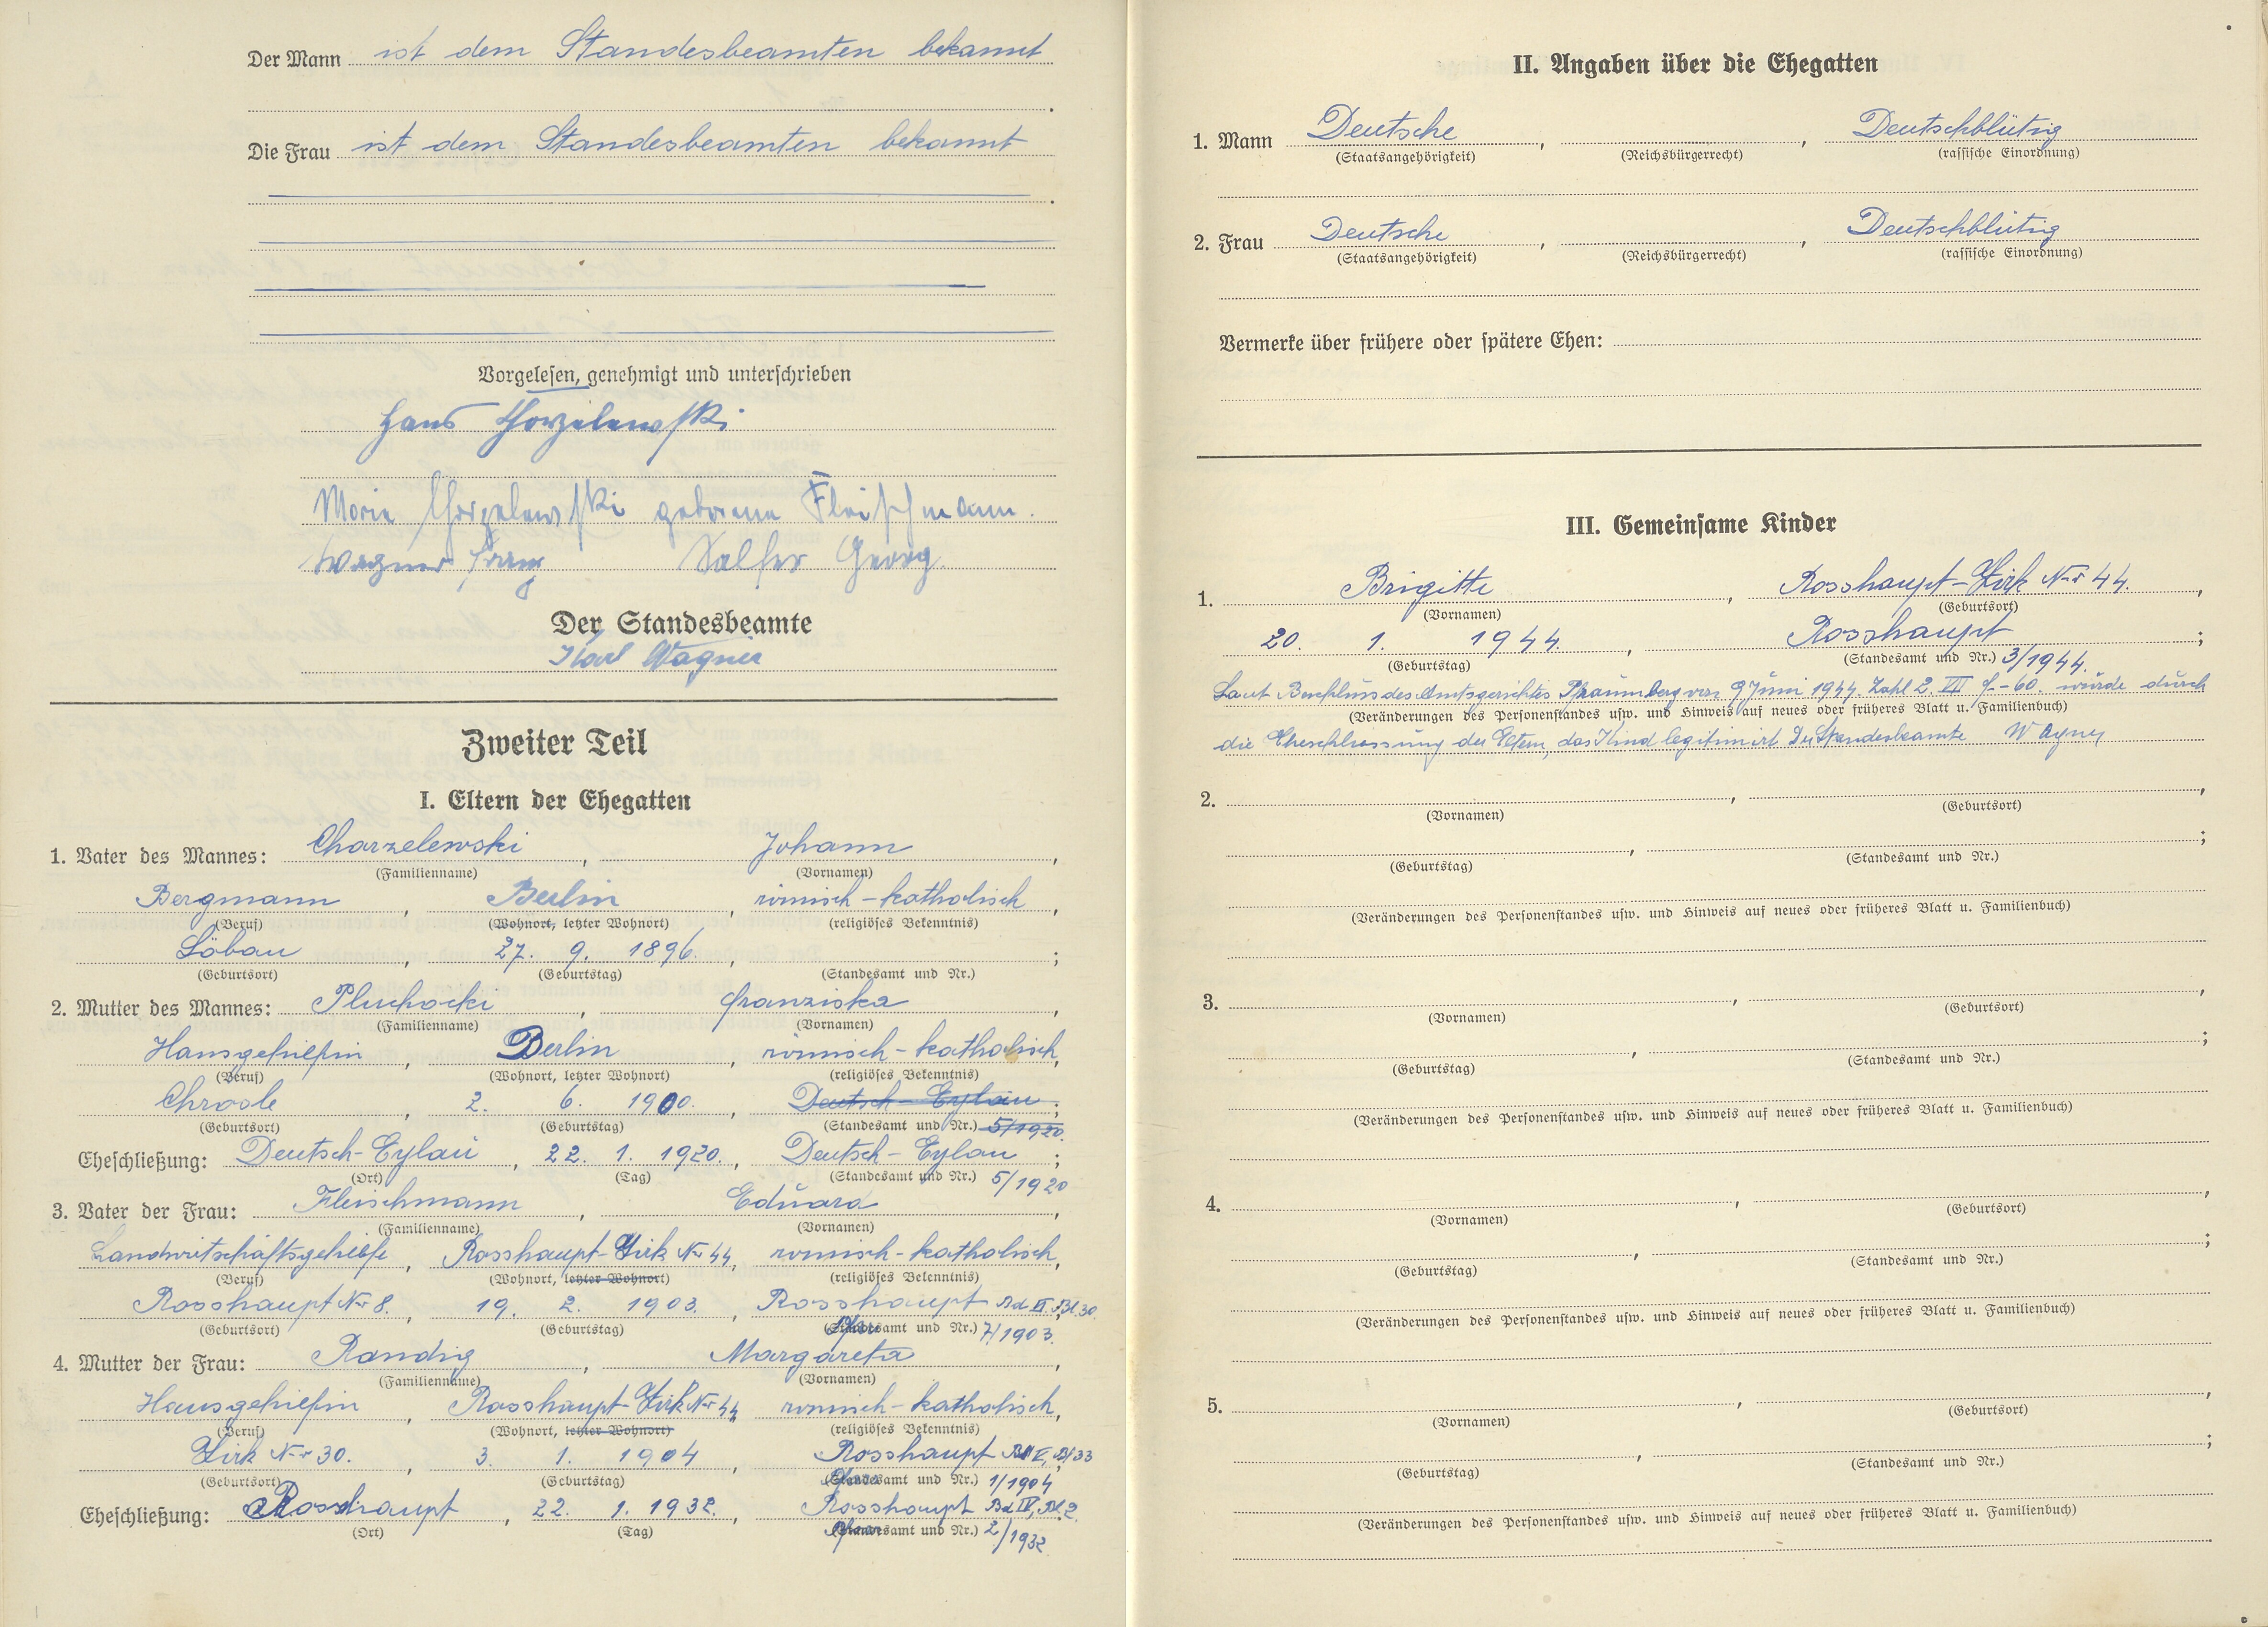 Der Mann ist dem Standesbeamten bekannt
Die Frau ist dem Standesbeamten bekannt
Vorgelesen, genehmigt und unterschrieben
Hans Chorzelewski
Marie Chorzelewski geborene Fleischmann.
Wagner Franz Salfer Georg
Der Standesbeamte
Karl Wagner
Zweiter Teil
I. Eltern der Ehegatten
1. Vater des Mannes: Charzelewski, Johann,
(Familienname) (Vornamen)
Bergmann, Berlin, römisch-katholisch,
(Beruf) (Wohnort, letzter Wohnort) (religiöses Bekenntnis)
Löbau, 27. 9. 1896., ;
(Geburtsort) (Geburtstag) (Standesamt und Nr.)
2. Mutter des Mannes: Pluchocki, Franziska,
(Familienname) (Vornamen)
Hausgehilfin, Berlin, römisch-katholisch,
(Beruf) (Wohnort, letzter Wohnort) (religiöses Bekenntnis)
Chrosle, 2. 6. 1900., Deutsch-Eylau;
(Geburtsort) (Geburtstag) (Standesamt und Nr.) 5/1920.
Eheschließung: Deutsch-Eylau, 22. 1. 1920., Deutsch-Eylau;
(Ort) (Tag) (Standesamt und Nr.) 5/1920
3. Vater der Frau: Fleischmann, Eduard,
(Familienname) (Vornamen)
Landwirtschaftsgehilfe, Rosshaupt-Zirk Nr 44, römisch-katholisch,
(Beruf) (Wohnort, letzter Wohnort) (religiöses Bekenntnis)
Rosshaupt Nr 8., 19. 2. 1903., Rosshaupt Bd. Bl. 30.
(Geburtsort) (Geburtstag) (Standesamt und Nr.) 7/1903.
4. Mutter der Frau: Randig, Margareta,
(Familienname) (Vornamen)
Hausgehilfin, Rosshaupt-Zirk Nr 44, römisch-katholisch,
(Beruf) (Wohnort, letzter Wohnort) (religiöses Bekenntnis)
Zirk Nr 30., 3. 1. 1904, Rosshaupt Bl 33
(Geburtsort) (Geburtstag) (Standesamt und Nr.) 1/1904
Eheschließung: Rosshaupt, 22. 1. 1932., Rosshaupt Bd IV, Bl. 2.
(Ort) (Tag) (Standesamt und Nr.) 2/1932
II. Angaben über die Ehegatten
1. Mann Deutsche, , Deutschblütig
(Staatsangehörigkeit) (Reichsbürgerrecht) (rassische Einordnung)
2. Frau Deutsche, , Deutschblütig
(Staatsangehörigkeit) (Reichsbürgerrecht) (rassische Einordnung)
Vermerke über frühere oder spätere Ehen:
III. Gemeinsame Kinder
1. Brigitte, Rosshaupt-Zirk Nr 44.,
(Vornamen) (Geburtsort)
20. 1. 1944., Rosshaupt;
(Geburtstag) (Standesamt und Nr.) 3/1944.
Laut Beschluss des Amtsgerichtes Pfraumberg vom 9 Juni 1944. Zahl 2. VII -60. wurde durch
(Veränderungen des Personenstandes usw. und Hinweis auf neues oder früheres Blatt u. Familienbuch)
die Eheschliessung der Eltern, das Kind legitimirt. Der Standesbeamte Wagner
2. , ,
(Vornamen) (Geburtsort)
, ;
(Geburtstag) (Standesamt und Nr.)
(Veränderungen des Personenstandes usw. und Hinweis auf neues oder früheres Blatt u. Familienbuch)
3. , ,
(Vornamen) (Geburtsort)
, ;
(Geburtstag) (Standesamt und Nr.)
(Veränderungen des Personenstandes usw. und Hinweis auf neues oder früheres Blatt u. Familienbuch)
4. , ,
(Vornamen) (Geburtsort)
, ;
(Geburtstag) (Standesamt und Nr.)
(Veränderungen des Personenstandes usw. und Hinweis auf neues oder früheres Blatt u. Familienbuch)
5. , ,
(Vornamen) (Geburtsort)
, ;
(Geburtstag) (Standesamt und Nr.)
(Veränderungen des Personenstandes usw. und Hinweis auf neues oder früheres Blatt u. Familienbuch)